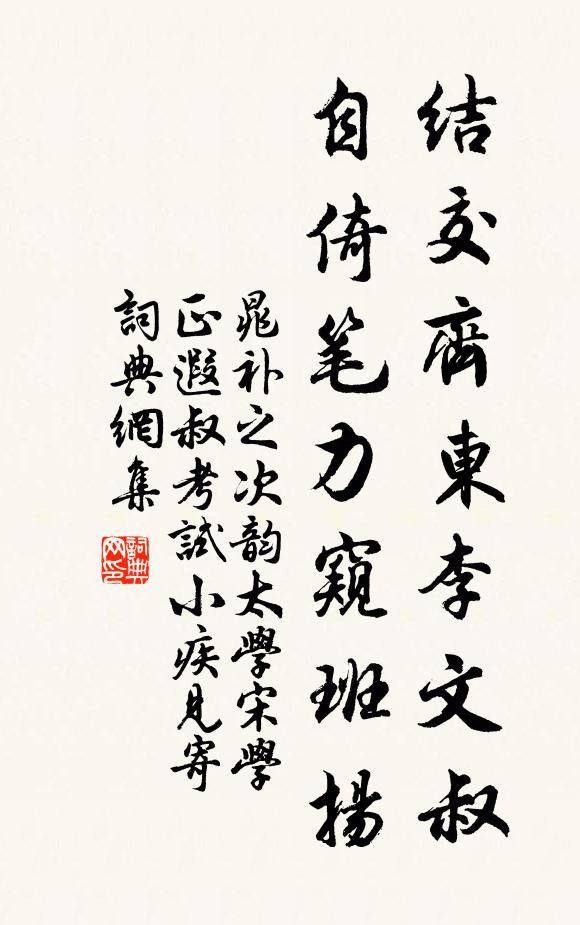 結交齊東李文叔
自倚笔力窺班揚
晁补之次韵太學宋學
正遐叔考試小疾見寄
詞典網集
詞典網印